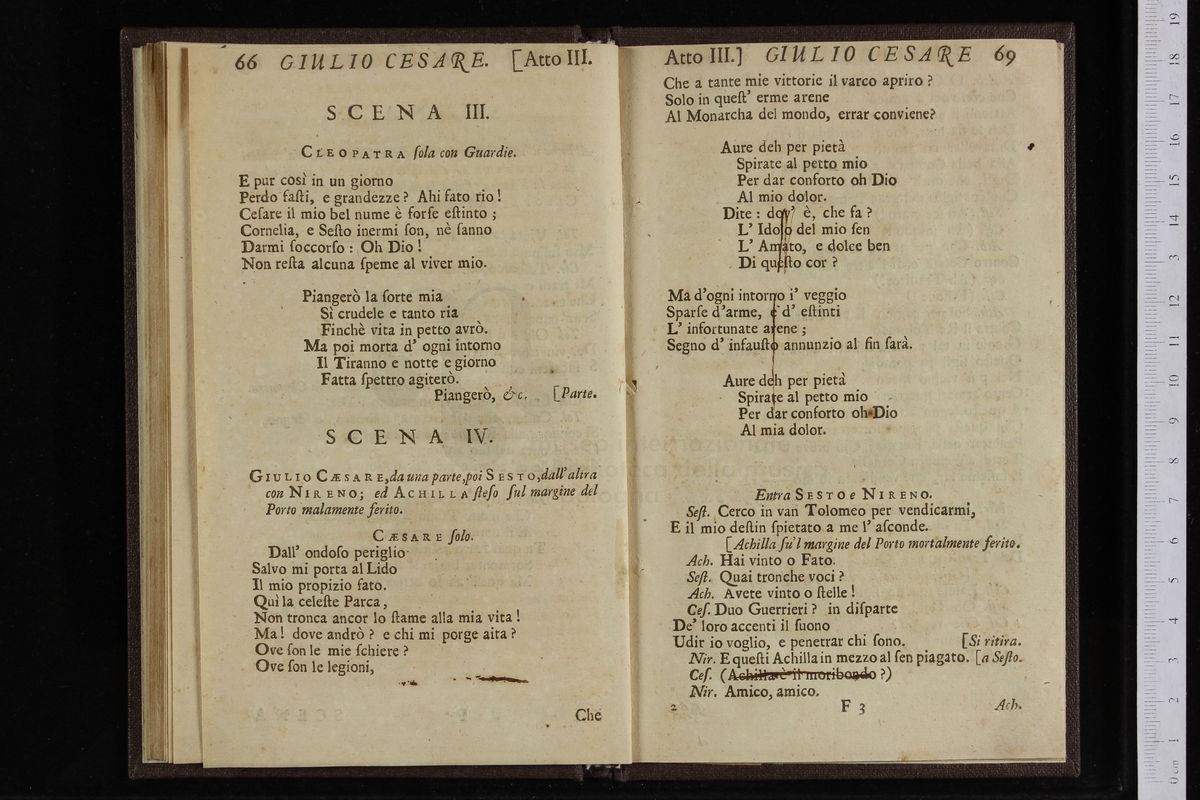 66 GIULIO CESARE. [Atto III.
SCENA III.
CLEOPATRA ſola con Guardie.
E pur così in un giorno
Perdo faſti, e grandezze? Ahi fato rio!
Ceſare il mio bel nume è forſe eſtinto;
Cornelia, e Seſto inermi ſon, nè ſanno
Darmi ſoccorſo: Oh Dio!
Non reſta alcuna ſpeme al viver mio.
Piangerò la ſorte mia
Sì crudele e tanto ria
Finchè vita in petto avrò.
Ma poi morta d' ogni intorno
Il Tiranno e notte e giorno
Fatta ſpettro agiterò.
Piangerò, &c. [Parte.
SCENA IV.
GIULIO CÆSARE, da una parte, poi SESTO, dall' altra
con NIRENO; ed ACHILLA ſteſo ſul margine del
Porto malamente ferito.
CÆSARE ſolo.
Dall' ondoſo periglio
Salvo mi porta al Lido
Il mio propizio fato.
Quì la celeſte Parca,
Non tronca ancor lo ſtame alla mia vita!
Ma! dove andrò? e chi mi porge aita?
Ove ſon le mie ſchiere?
Ove ſon le legioni,
Che
Atto III.] GIULIO CESARE 69
Che a tante mie vittorie il varco apriro?
Solo in queſt' erme arene
Al Monarcha del mondo, errar conviene?
Aure deh per pietà
Spirate al petto mio
Per dar conforto oh Dio
Al mio dolor.
Dite: dov' è, che fa?
L' Idolo del mio ſen
L' Amato, e dolce ben
Di queſto cor?
Ma d'ogni intorno i' veggio
Sparſe d'arme, e d' eſtinti
L' infortunate arene;
Segno d' infauſto annunzio al fin ſarà.
Aure deh per pietà
Spirate al petto mio
Per dar conforto oh Dio
Al mia dolor.
Entra SESTO e NIRENO.
Seſt. Cerco in van Tolomeo per vendicarmi,
E il mio deſtin ſpietato a me l' aſconde.
[Achilla ſu'l margine del Porto mortalmente ferito.
Ach. Hai vinto o Fato.
Seſt. Quai tronche voci?
Ach. Avete vinto o ſtelle!
Ceſ. Duo Guerrieri? in diſparte
De' loro accenti il ſuono
Udir io voglio, e penetrar chi ſono. [Si ritira.
Nir. E queſti Achilla in mezzo al ſen piagato. [a Seſto.
Ceſ. (Achilla è il moribondo?)
Nir. Amico, amico.
2 F 3 Ach.
0 cm 1 2 3 4 5 6 7 8 9 10 11 12 13 14 15 16 17 18 19